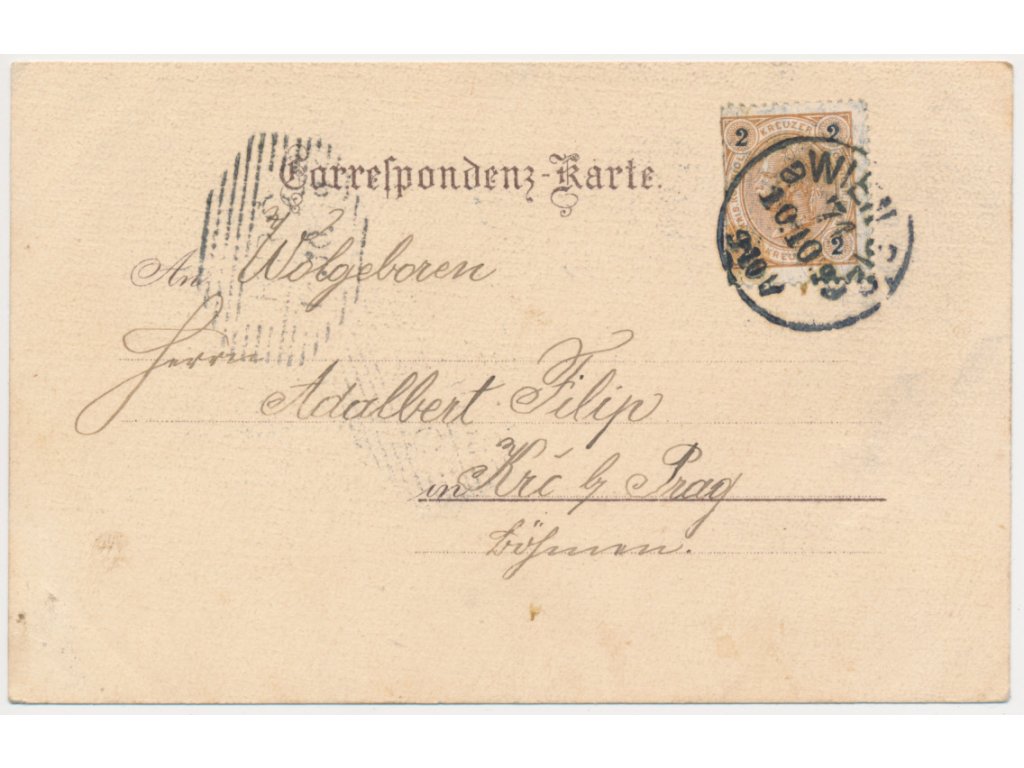 Correspondenz-Karte.
2 KREUZER 2
WIEN
7/1
10.10
2
An Wolgeboren
Herrn
Adalbert Filip
in Krč b/ Prag
Böhmen.